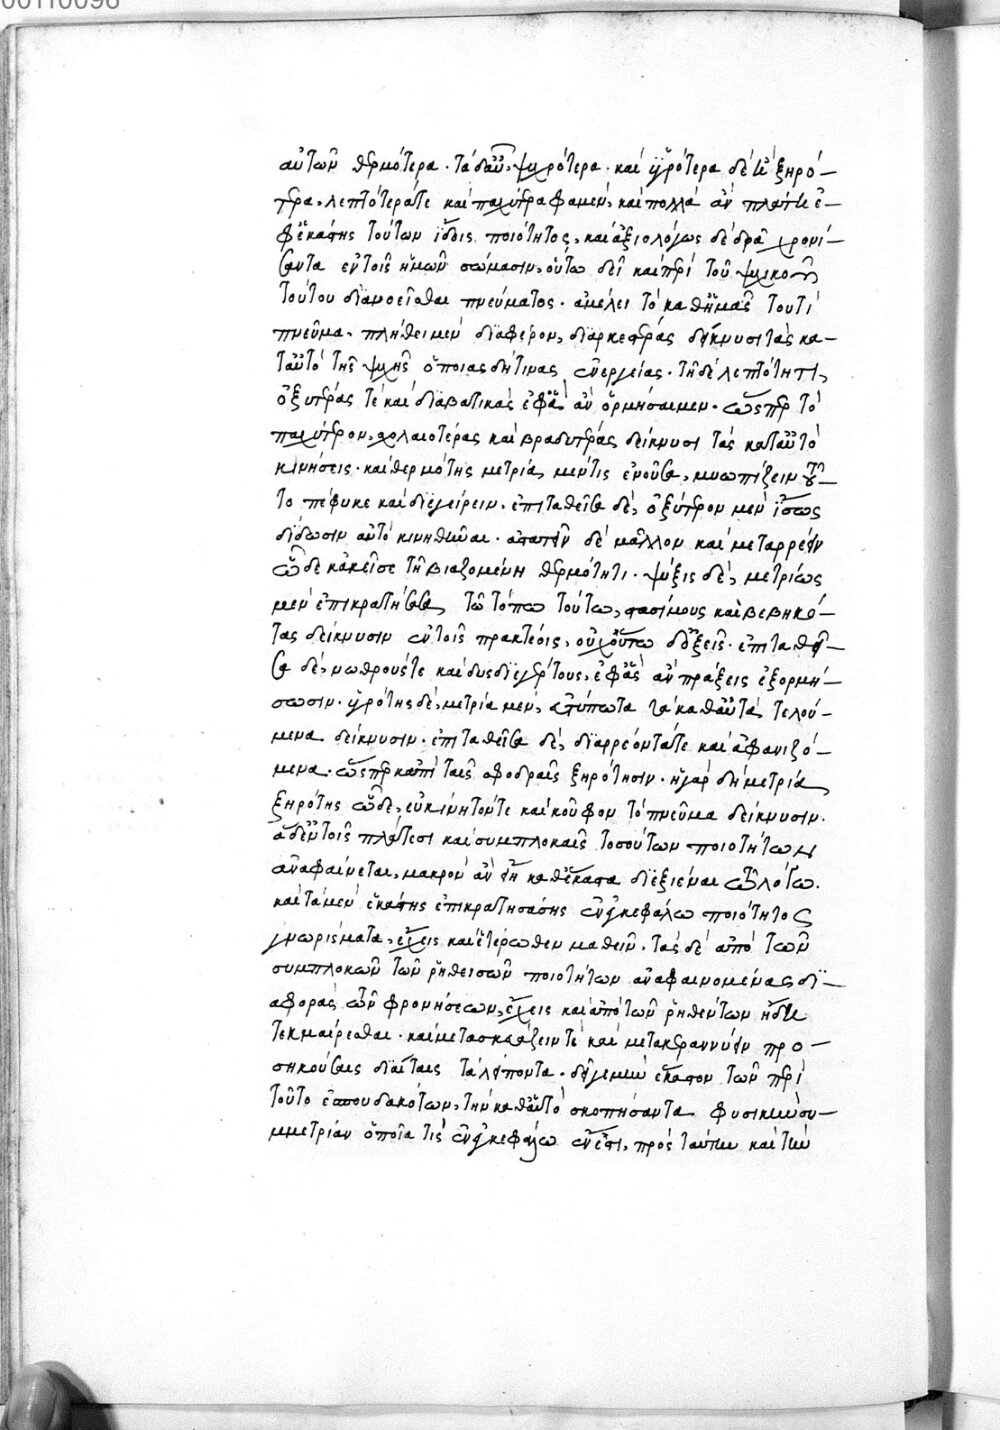 00110096
αὐτῶν θερμότερα· τὰ δ' αὖ, ψυχρότερα· καὶ ὑγρότερα δὲ καὶ ξηρό-
τερα, λεπτότερά τε καὶ παχύτερα φαμέν, καὶ πολλὰ ἂν πλάτη ἐ-
φ' ἑκάστης τούτων ἴδοις ποιότητος, καὶ ἀξιολόγως δὲ δρᾶ χρονί-
σαντα ἐν τοῖς ἡμῶν σώμασιν, οὕτω δεῖ καὶ περὶ τοῦ ψυχικοῦ
τούτου διανοεῖσθαι πνεύματος. ἀμέλει τὸ καθ' ἡμᾶς τουτὶ
πνεῦμα, πλήθει μὲν διαφέρον, διαρκεστέρας δείκνυσι τὰς κα-
τ' αὐτὸ τῆς ψυχῆς ὁποίας δήτινας ἐνεργείας· τῇ δὲ λεπτότητι,
ὀξυτέρας τὲ καὶ διαβατικὰς ἐφ' ἃ ἂν ὁρμήσαιμεν· ὥσπερ τὸ
παχύτερον, σχολαιοτέρας καὶ βραδυτέρας δείκνυσι τὰς κατ' αὐτὸ
κινήσεις· καὶ θερμότης μετρία μέν τις ἐνοῦσα, μυωπίζειν τοῦ-
το πέφυκε καὶ διεγείρειν. ἐπιταθεῖσα δὲ, ὀξύτερον μὲν ἴσως
δίδωσιν αὐτὸ κινηθῆναι. ἀστατεῖν δὲ μᾶλλον καὶ μεταρρεῖν
ὧδε κἀκεῖσε τῇ βιαζομένη θερμότητι· ψύξις δὲ, μετρίως
μὲν ἐπικρατήσασα τῶ τόπω τούτω, στασίμους καὶ βεβηκό-
τας δείκνυσιν ἐν τοῖς πρακτέοις, οὐχ' οὕτω δόξεις· ἐπιταθεῖ-
σα δὲ, νωθρούς τε καὶ δυσδιεγέρτους, ἐφ' ἃς ἂν πράξεις ἐξορμή-
σωσιν. ὑγρότης δὲ, μετρία μὲν, εὐτύπωτα τὰ καθ' αὑτὰ τελού-
μενα δείκνυσιν. ἐπιταθεῖσα δὲ, διαρρέοντά τε καὶ ἀφανιζό-
μενα· ὥσπερ κἀπὶ ταῖς σφοδραῖς ξηρότησιν· ἡ γὰρ δὴ μετρία
ξηρότης ὧδε, εὐκίνητόν τε καὶ κοῦφον τὸ πνεῦμα δείκνυσιν.
ἃ δ' ἐν τοῖς πλάτεσι καὶ συμπλοκαῖς τοσούτων ποιοτήτων
ἀναφαίνεται, μακρὸν ἂν εἴη καθ' ἕκαστα διεξιέναι τῶ λόγω.
καὶ τὰ μὲν ἑκάστης ἐπικρατησάσης ἐν ἐγκεφάλω ποιότητος
γνωρίσματα, ἔχεις καὶ ἑτέρωθεν μαθεῖν. τὰς δὲ ἀπὸ τῶν
συμπλοκῶν τῶν ῥηθεισῶν ποιοτήτων ἀναφαινομένας δι-
αφορὰς τῶν φρονήσεων, ἔχεις καὶ ἀπὸ τῶν ῥηθέντων ἤδη
τεκμαίρεσθαι· καὶ μετασκευάζειν τὲ καὶ μετακεραννύειν προ-
σηκούσαις διαίταις τὰ λείποντα. δεῖ γε μὴν ἕκαστον τῶν περὶ
τοῦτο ἐσπουδακότων, τὴν καθ' αὑτὸ σκοπήσαντα φυσικὴν συ-
μμετρίαν ὁποία τις ἐν ἐγκεφάλω ἔνεστι, πρὸς ταύτην καὶ τὴν